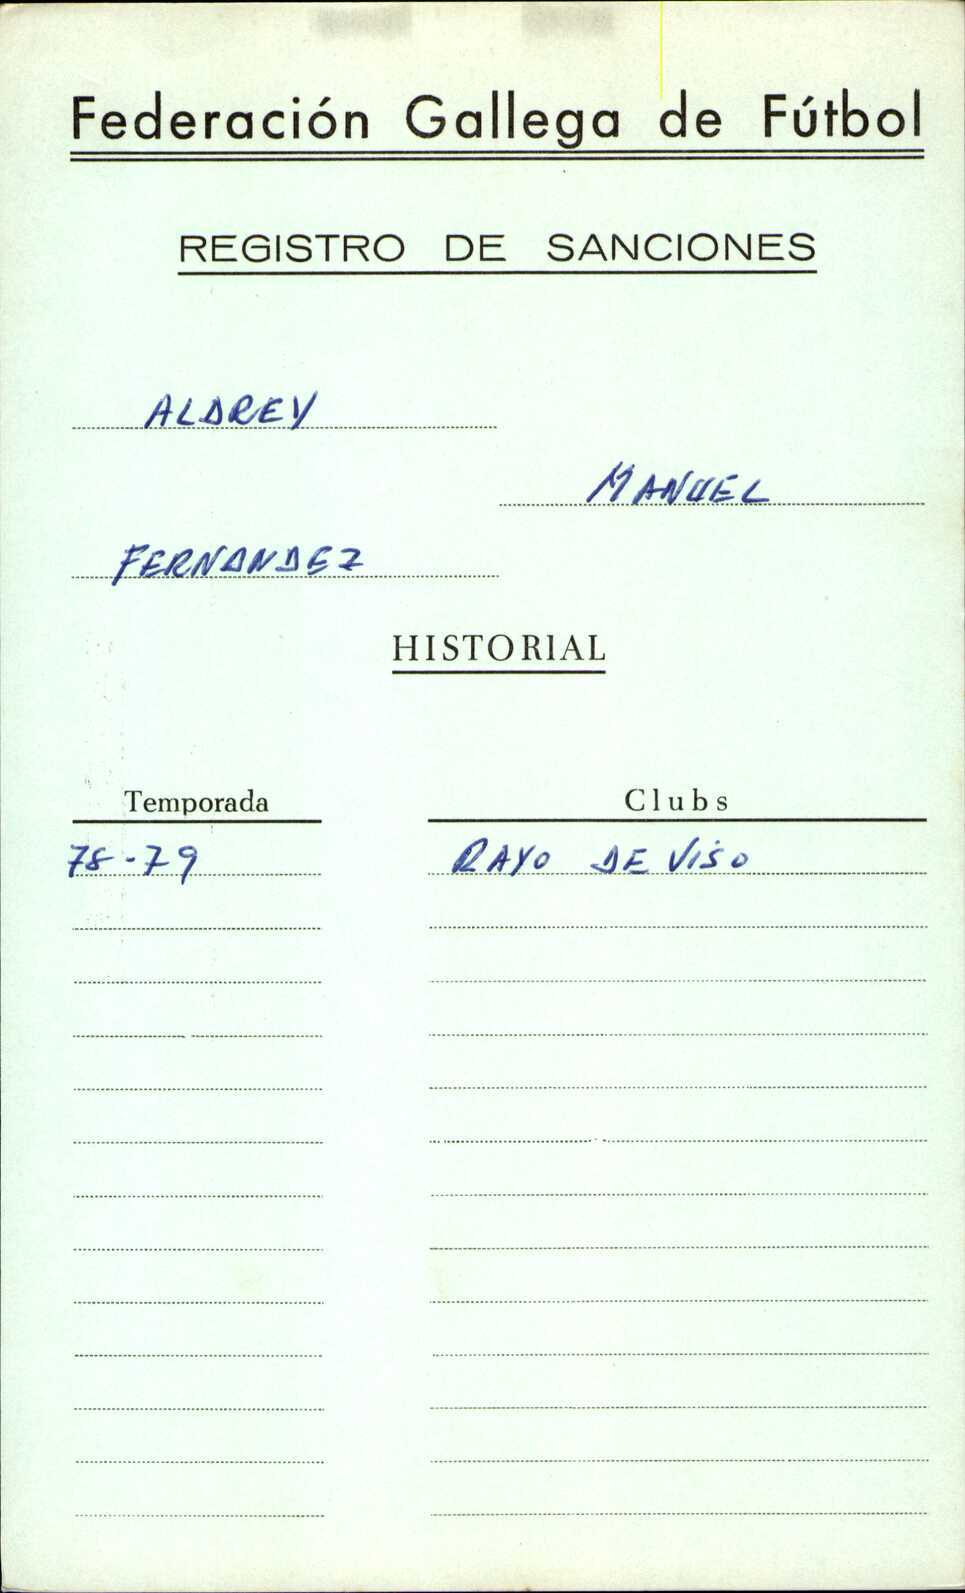 Federación Gallega de Fútbol
REGISTRO DE SANCIONES
ALDREY
MANUEL
FERNANDEZ
HISTORIAL
Temporada Clubs
78-79 RAYO DE VISO